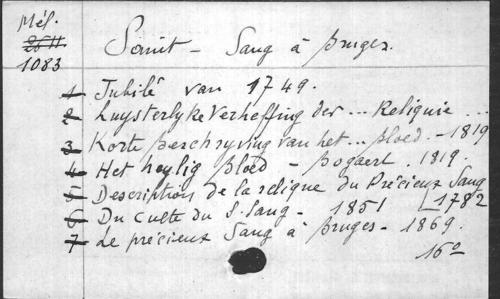 Mél.
26 H
1083
Saint - Sang à Bruges.
1 Jubilé van 1749.
2 Luysterlyke Verheffing der ... Reliquie ...
3 Korte beschryving van het ... Bloed. - 1819
4 Het heylig Bloed - Bogaert. 1819.
5 Description de la relique du Précieux Sang
1782
6 Du Culte du S. Sang - 1851
7 Le précieux Sang à Bruges - 1869.
16°